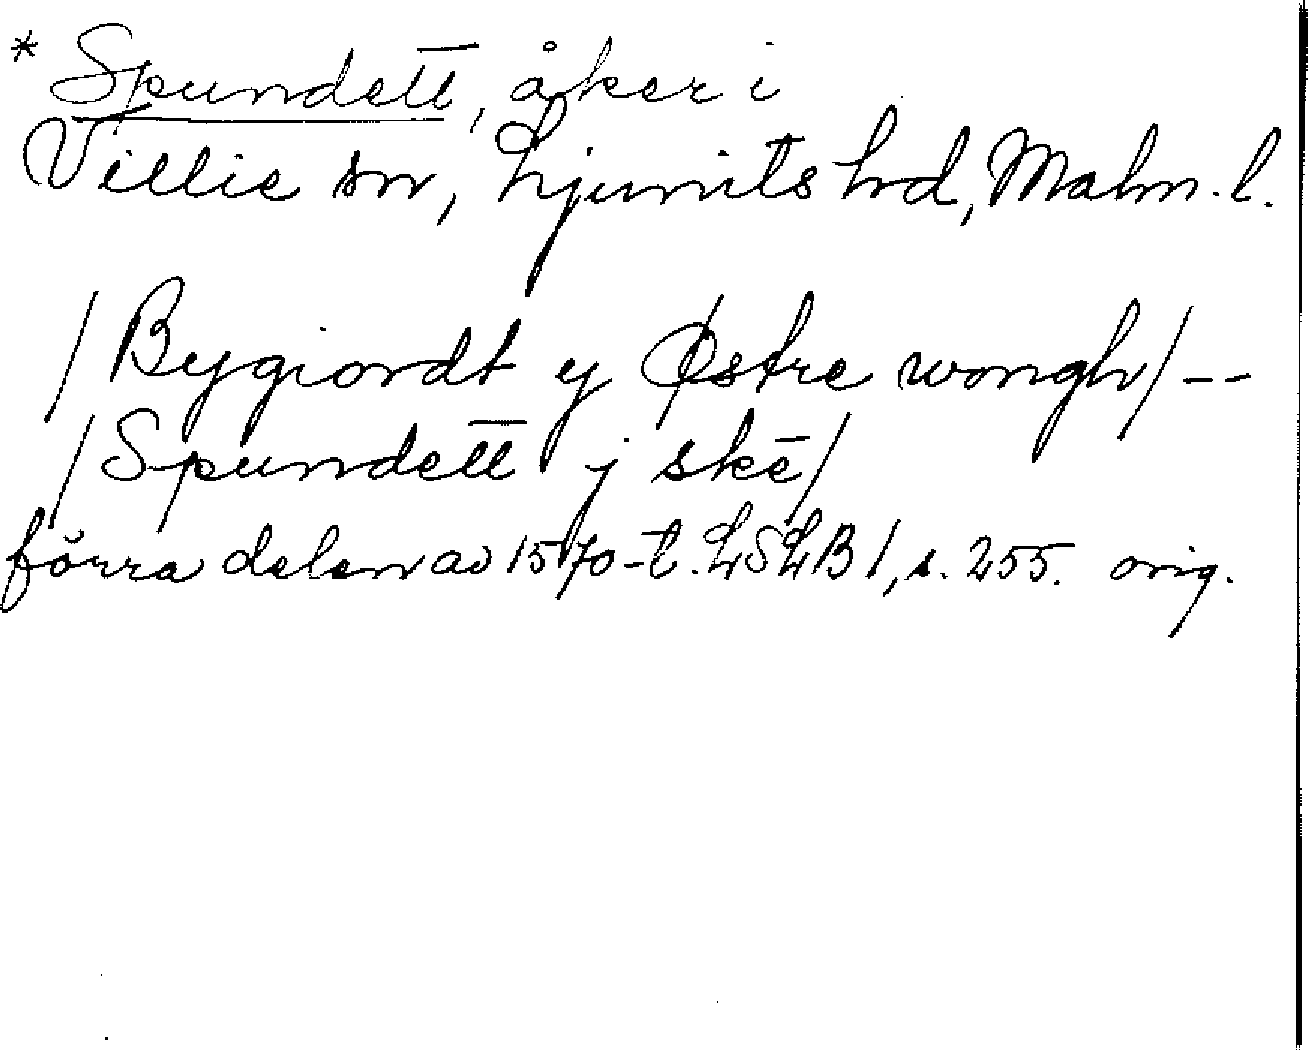 * Spundett̅, åker i
Villie sn, Ljunits hd, Malm. l.
/Bygiordt y Østre wongh/ --
/Spundett̅ j skē/
förra delen av 1570-t. LSLB 1, s. 255. orig.